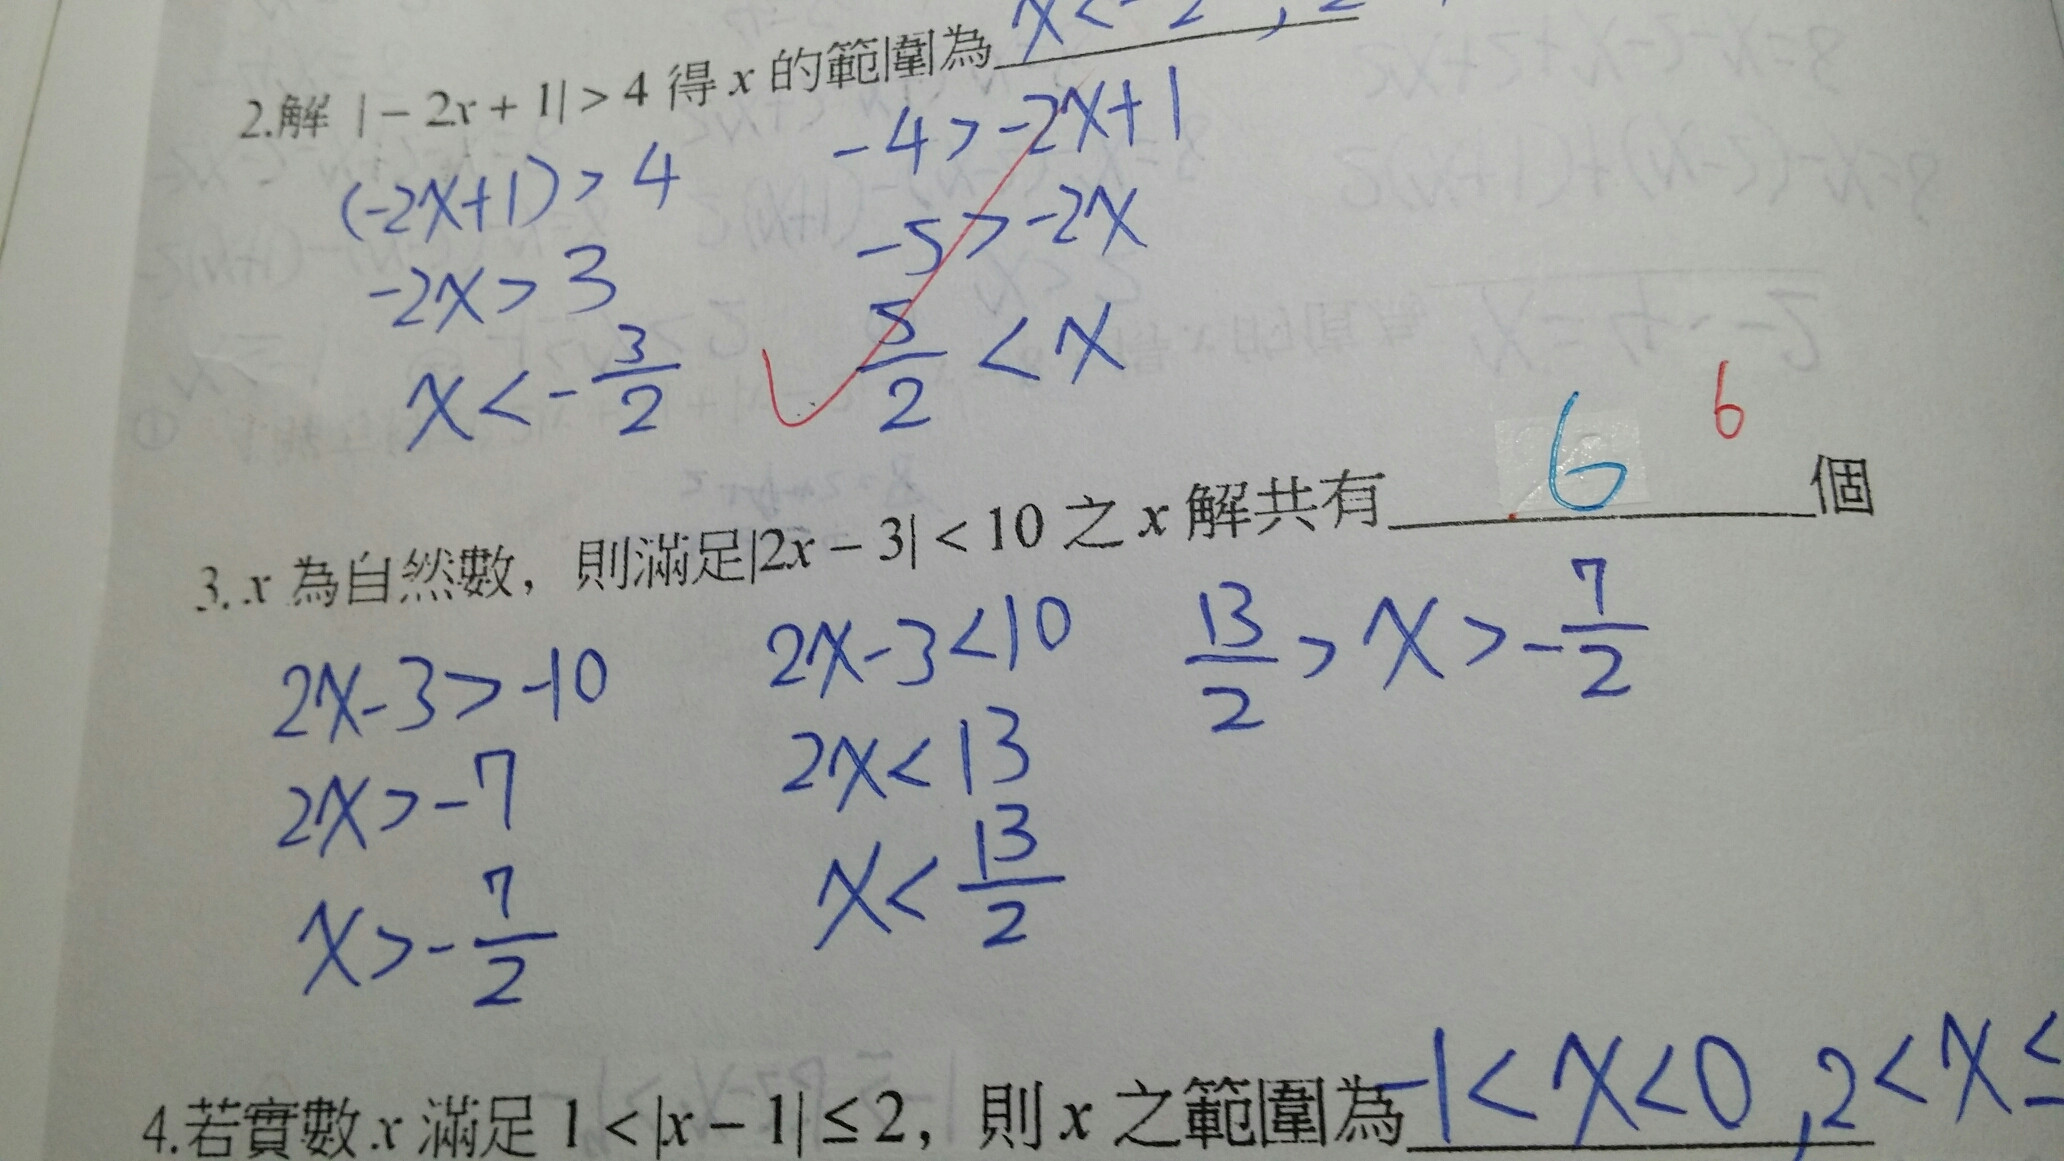 2.解 |－2x＋1|＞4 得 x 的範圍為 x<-
(-2x+1)>4
-2x>3
x<-3/2
-4>-2x+1
-5>-2x
5/2<x
6
3. x 為自然數，則滿足|2x－3|＜10 之 x 解共有 6 個
2x-3>-10
2x>-7
x>-7/2
2x-3<10
2x<13
x<13/2
13/2>x>-7/2
4.若實數 x 滿足 1＜|x－1|≤2，則 x 之範圍為 -1<x<0,2<x≤